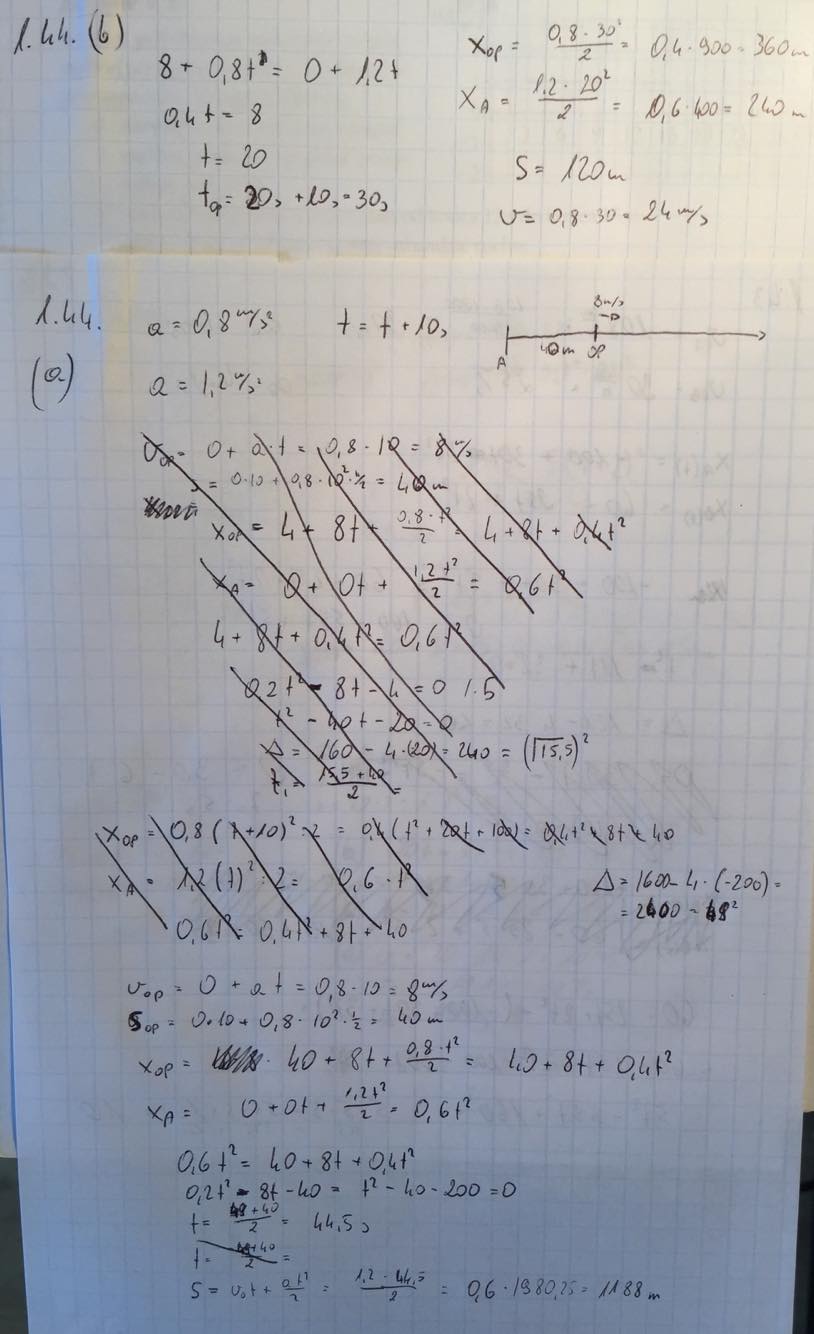 1.44. (b)
8 + 0,8t = 0 + 1,2t
0,4t = 8
t = 20
t_op = 20s + 10s = 30s
x_op = 0,8 · 30² / 2 = 0,4 · 900 = 360 m
x_A = 1,2 · 20² / 2 = 0,6 · 400 = 240 m
S = 120 m
v = 0,8 · 30 = 24 m/s
1.44. a = 0,8 m/s² t = t + 10s
(a) a = 1,2 m/s²
8 m/s
A 40 m OP
v_op = 0 + a·t = 0,8 · 10 = 8 m/s
s = 0·10 + 0,8 · 10² · ½ = 40 m
x_op = 4 + 8t + 0,8·t² / 2 = 4 + 8t + 0,4t²
x_A = 0 + 0t + 1,2t² / 2 = 0,6t²
4 + 8t + 0,4t² = 0,6t²
0,2t² - 8t - 4 = 0 /·5
t² - 40t - 20 = 0
Δ = 160 - 4·(20) = 240 = (√15,5)²
t₁ = 15,5 + 40 / 2 =
x_op = 0,8 (t+10)² : 2 = 0,4 (t² + 20t + 100) = 0,4t² + 8t + 40
x_A = 1,2 (t)² : 2 = 0,6 · t²
0,6t² = 0,4t² + 8t + 40
Δ = 1600 - 4 · (-200) =
= 2400 = 49²
v_op = 0 + at = 0,8 · 10 = 8 m/s
S_op = 0·10 + 0,8 · 10² · ½ = 40 m
x_op = 40 + 8t + 0,8·t² / 2 = 40 + 8t + 0,4t²
x_A = 0 + 0t + 1,2t² / 2 = 0,6t²
0,6t² = 40 + 8t + 0,4t²
0,2t² - 8t - 40 = t² - 40 - 200 = 0
t = 49 + 40 / 2 = 44,5 s
t = 49+40 / 2 =
S = v₀t + at² / 2 = 1,2 · 44,5 / 2 = 0,6 · 1980,25 = 1188 m